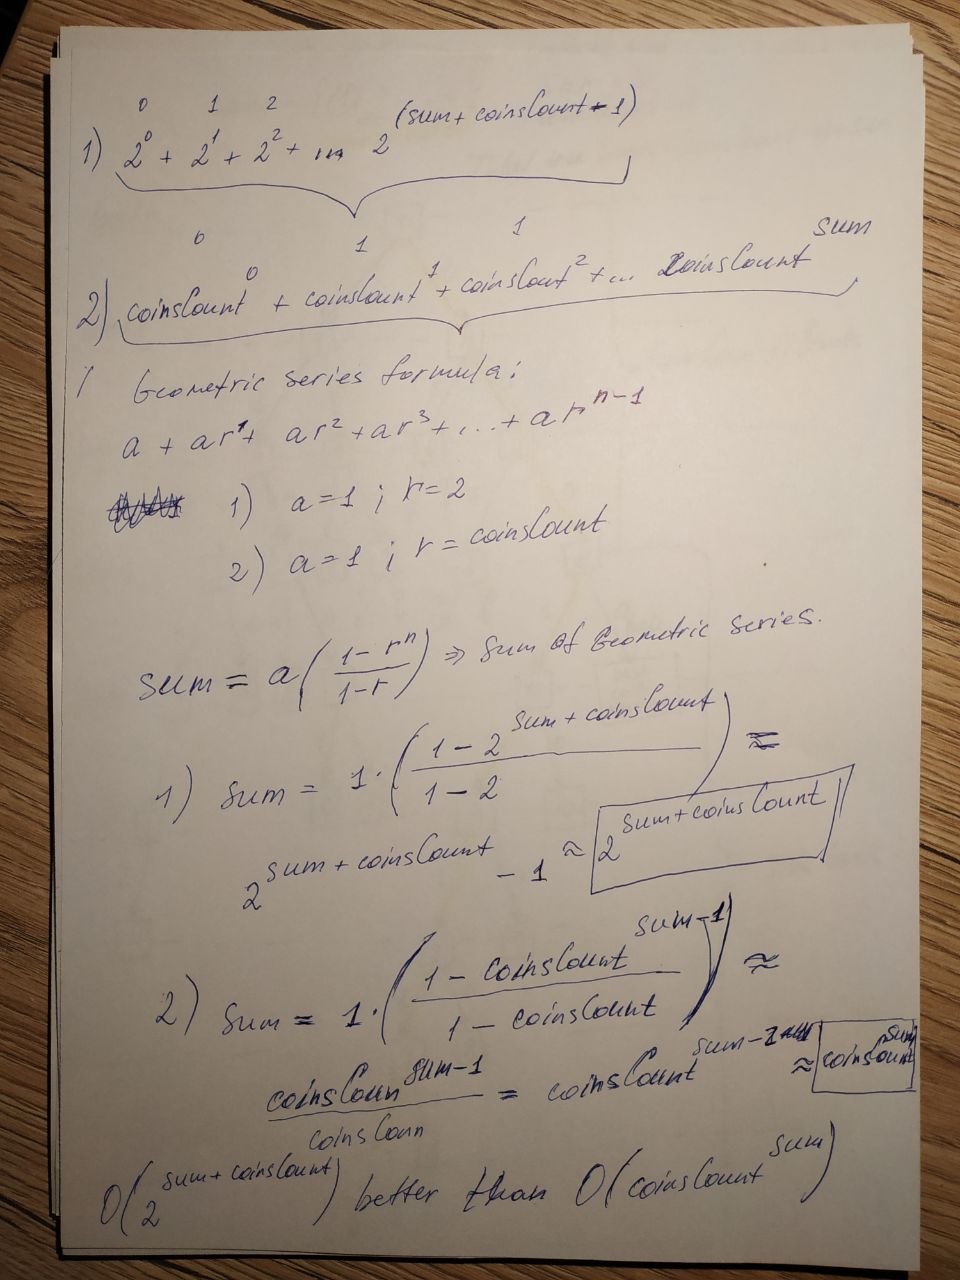 0 1 2
1) 2^0 + 2^1 + 2^2 + ... 2^(sum + coinsCount - 1)
0 1 1
2) coinsCount^0 + coinsCount^1 + coinsCout^2 + ... coinsCount^sum
Geometric series formula:
a + ar^1 + ar^2 + ar^3 + ... + ar^n-1
1) a = 1 ; r = 2
2) a = 1 ; r = coinsCount
sum = a (1 - r^n / 1 - r) => Sum of Geometric series.
1) Sum = 1 · (1 - 2^sum + coinsCount / 1 - 2) =
2^sum + coinsCount - 1 ≈ 2^sum + coinsCount
2) Sum = 1 · (1 - coinsCount^sum-1 / 1 - coinsCount) ≈
coinsCoun^sum-1 / coinsCoun = coinsCount^sum- ≈ coinsCount^sum
O(2^sum + coinsCount) better than O(coinsCount^sum)